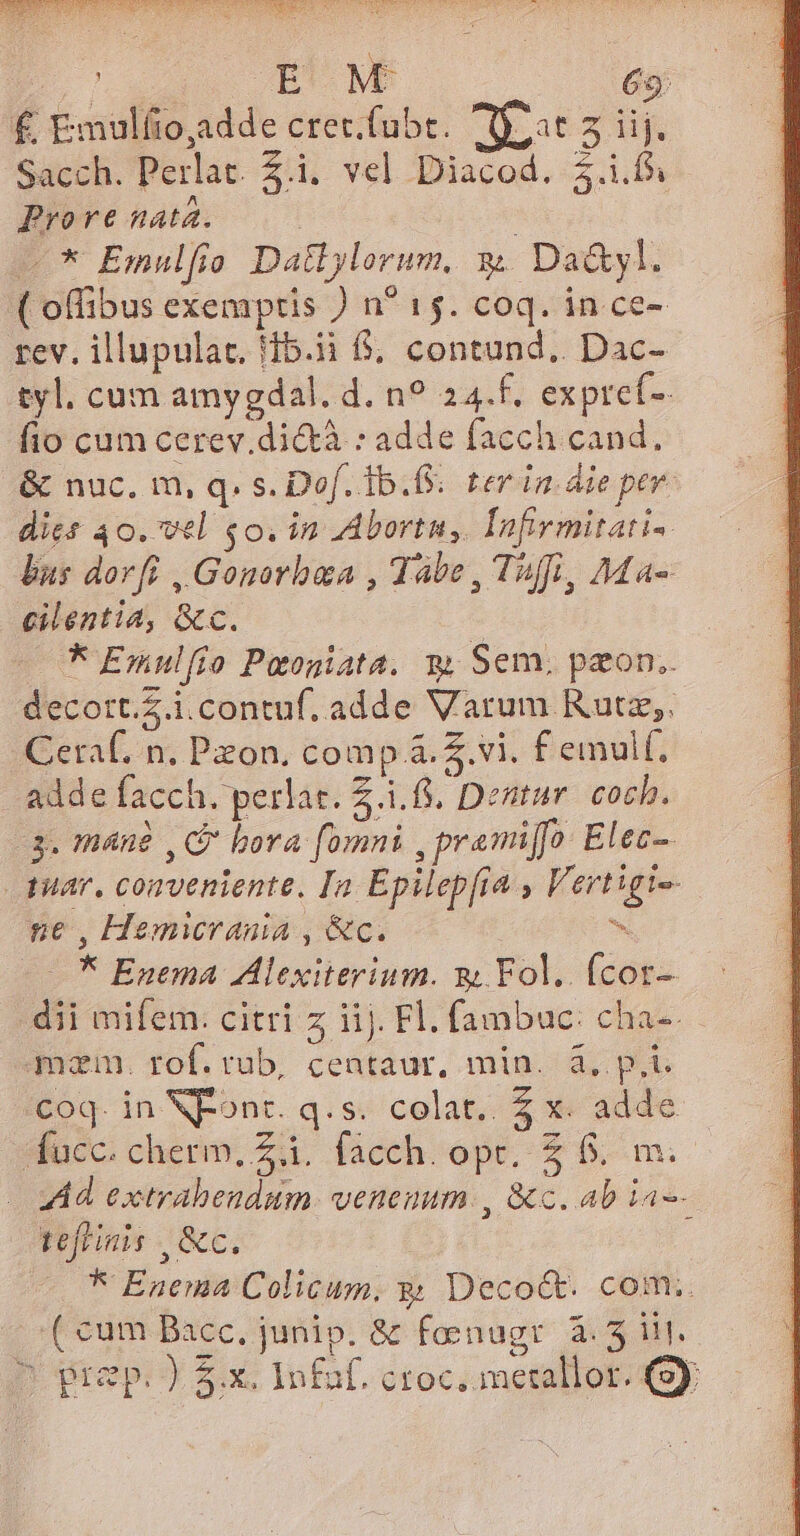 E M 69
ſ. Emulſio, adde cret. ſubt. ♃at ʒ iij.
Sacch. Perlat. ℥.i. vel Diacod. ℥.i.ß.
Pro re nata.
* Emulſio Dactylorum. ℞. Dactyl.
( oſſibus exemptis ) nº 15. coq. in ce-
rev. illupulat. ℔.ii ß, contund. Dac-
tyl. cum amygdal. d. nº 24. ſ. expreſ-
ſio cum cerev. dictâ : adde ſacch cand.
& nuc. m, q. s. Doſ. ℔.ß. ter in die per
dies 40. vel 50. in Abortu, Infirmitati-
bus dorſi , Gonorhœa , Tabe , Tuſſi, Ma-
cilentia, &c.
* Emulſio Pæoniata. ℞ Sem. pæon.
decort. ℥.i. contuſ. adde Aarum Rutæ,
Ceraſ. n. Pæon. comp â. ℥.vi. ſ emulſ.
adde ſacch. perlat. ℥.i.ß. Dentur coch.
3. manè , & hora ſomni , præmiſſo Elec-
tuar. conveniente. In Epilepſia , Vertigi-
ne , Hemicrania , &c.
* Enema Alexiterium. ℞. Fol. ſcor-
dii miſem. citri ʒ iij. Fl. ſambuc. cha-
mæm. roſ. rub, centaur. min. â, p.i.
coq. in ▽Font. q.s. colat. ℥ x. adde
ſucc. cherm, ℥.i. ſacch. opt. ℥ ß. m.
Ad extrahendum venenum , &c. ab in-
teſtinis , &c.
* Enema Colicum. ℞ Decoct. com.
( cum Bacc. junip. & fœnugr â. ʒ iij.
præp. ) ℥.x. Infuſ. croc. metallor.